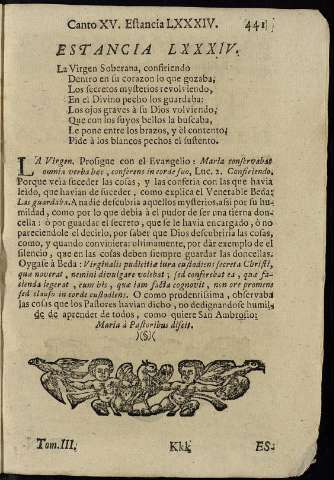 Canto XV. Eſtancia LXXXIV. 441
ESTANCIA LXXXIV.
La Virgen Soberana, confiriendo
Dentro en ſu corazon lo que gozaba,
Los ſecretos myſterios revolviendo,
En el Divino pecho los guardaba:
Los ojos graves à ſu Dios volviendo,
Que con los ſuyos bellos la buſcaba,
Le pone entre los brazos, y el contento,
Pide à los blancos pechos el ſuſtento.
LA Virgen. Proſigue con el Evangelio: Maria conſervabat
omnia verba hæc, conferens in corde ſuo, Luc. 2. Confiriendo,
Porque veía ſuceder las coſas, y las conferia con las que havia
leido, que havian de ſuceder, como explica el Venerable Beda:
Las guardaba. A nadie deſcubria aquellos myſterios, aſsi por ſu hu-
mildad, como por lo que debia à el pudor de ſer una tierna donce-
lla: ò por guardar el ſecreto, que ſe le havia encargado, ò no
pareciendole el decirlo, por ſaber que Dios deſcubriria las coſas,
como, y quando conviniera: ultimamente, por dàr exemplo de el
ſilencio, que en las coſas deben ſiempre guardar las doncellas.
Oygaſe à Beda: Virginalis pudicitiæ iura cuſtodiens ſecreta Chriſti,
quæ noverat, nemini divulgare volebat; ſed conferebat ea, quæ fa-
cienda legerat, cum his, quæ iam facta cognovit, non ore promens
ſed clauſo in corde cuſtodiens. O como prudentiſsima, obſervaba
las coſas que los Paſtores havian dicho, no dedignandoſe humil-
de de aprender de todos, como quiere San Ambroſio:
Maria à Paſtoribus diſcit.
)(§)(
Tom. III. Kkk ES-